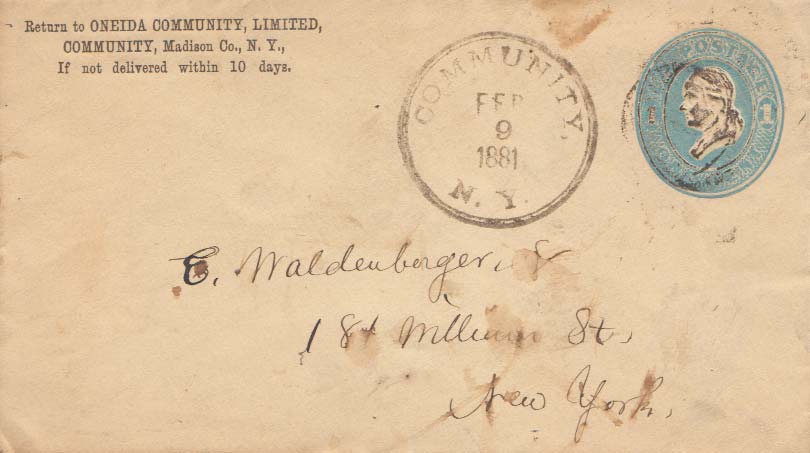 Return to ONEIDA COMMUNITY, LIMITED,
COMMUNITY, Madison Co., N. Y.,
If not delivered within 10 days.
COMMUNITY,
FEB
9
1881
N. Y.
POSTAGE
1
E. Waldenberger, &
184 William St,
New York,